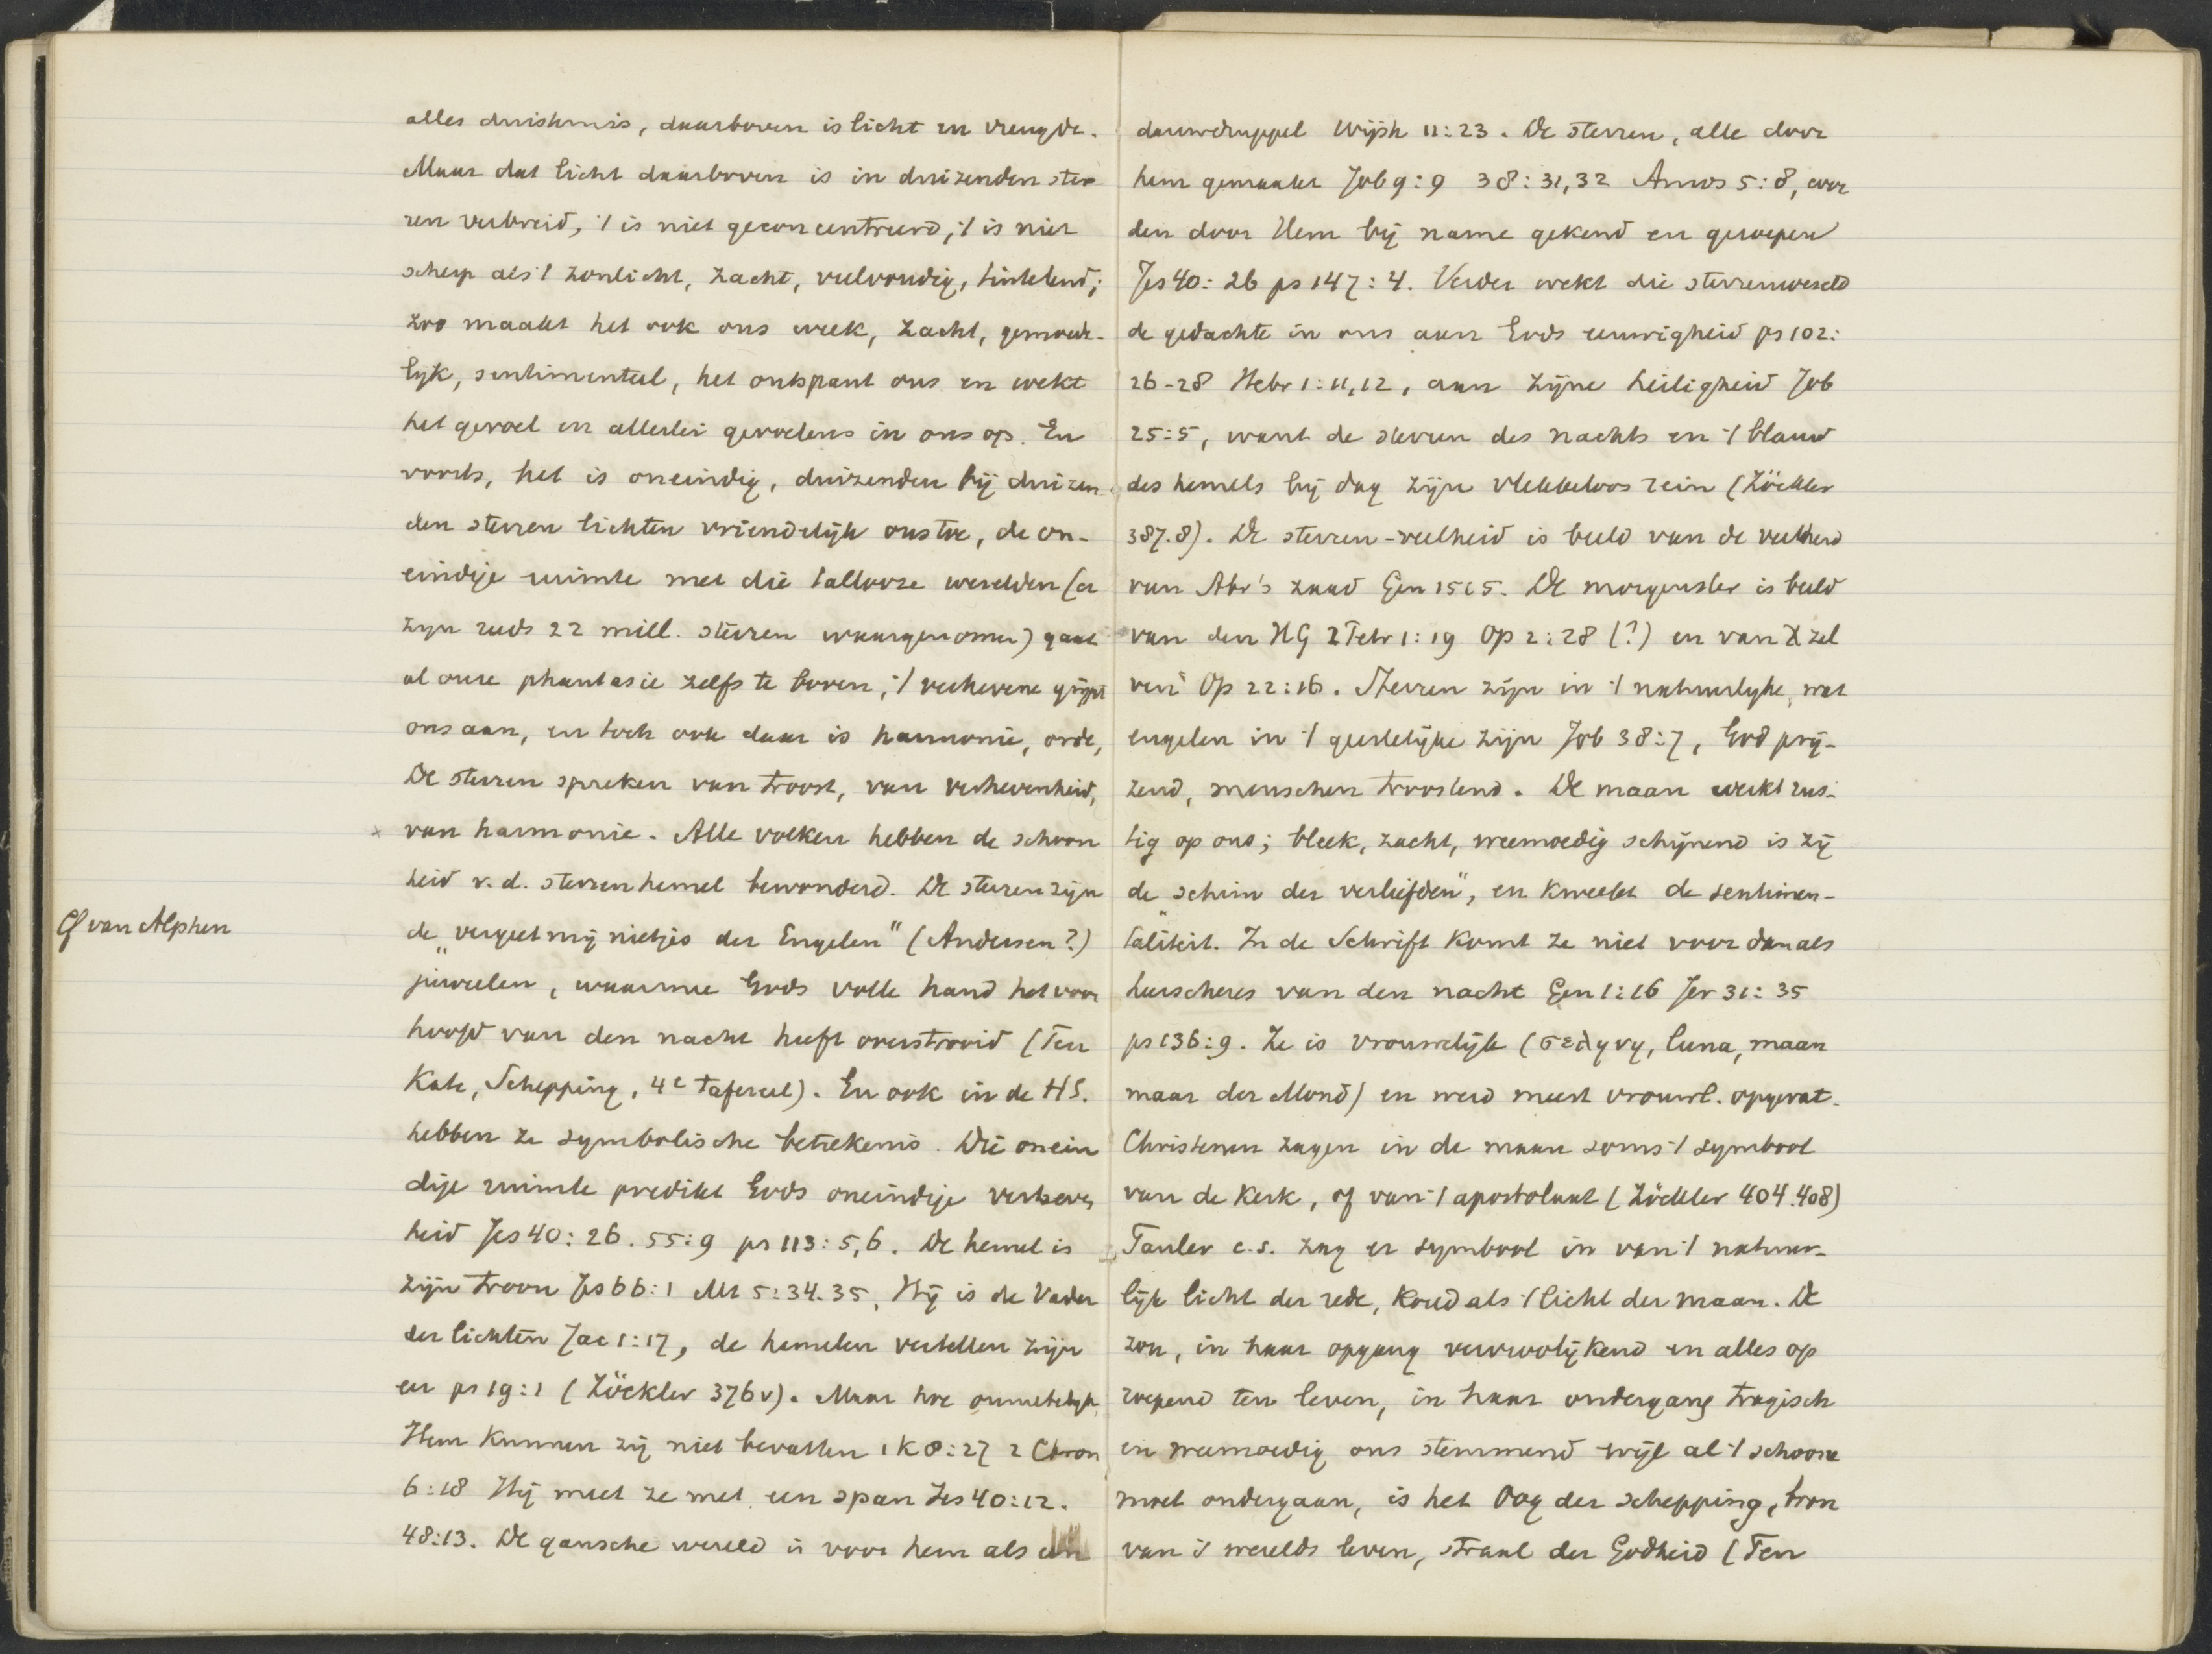 alles duisternis, daarboven is licht en vreugde.
Maar dat licht daarboven is in duizenden ster
ren verbreid, 't is niet geconcentreerd, 't is niet
scherp als 't zonlicht, zacht, veelvoudig, tintelend;
zoo maakt het ook ons week, zacht, gemoede-
lyk, sentimenteel, het ontspant ons en wekt
het gevoel en allerlei gevoelens in ons op. En
voorts, het is oneindig, duizenden bij duizen
den sterren lichten vriendelijk ons toe, de on-
eindige ruimte met die tallooze werelden (er
zyn reeds 22 mill. sterren waargenomen) gaat
al onze phantasie zelfs te boven, 't verhevene grijpt
ons aan, en toch ook daar is harmonie, orde,
De sterren spreken van troost, van verhevenheid,
x van harmonie. Alle volken hebben de schoon
heid v. d. sterrenhemel bewonderd. De sterren zijn
Cf van Alphen
de „vergeet mij nietjes der Engelen" (Andersen?)
juweelen, waarmee Gods volle hand het voor
hoofd van den nacht heeft overstrooid (Ten
Kate, Schepping, 4e tafereel). En ook in de HS.
hebben ze symbolische betekenis. Die onein
dige ruimte predikt Gods oneindige verheven
heid Jes 40: 26. 55:9 ps 113: 5,6. De hemel is
zijn troon Jes 66:1 Mt 5:34.35, Hij is de Vader
der lichten Jac 1:17, de hemelen vertellen zijn
eer ps 19:1 (Zöckler 376v). Maar hoe onmetelyk,
Hem kunnen zij niet bevatten 1 K 8:27 2 Chron
6:18 Hij meet ze met een span Jes 40:12.
48:13. De gansche wereld is voor hem als een
dauwdruppel Wijsh 11:23. De sterren, alle door
hem gemaakt Job 9:9 38:31,32 Amos 5:8, wor
den door Hem bij name gekend en geroepen
Jes 40: 26 ps 147: 4. Verder wekt die sterrenwereld
de gedachte in ons aan Gods eeuwigheid ps 102:
26-28 Hebr 1:11,12, aan zijne heiligheid Job
25:5, want de sterren des nachts en 't blauw
des hemels bij dag zijn vlekkeloos rein (Zöckler
387.8). De sterren-veelheid is beeld van de veelheid
van Abr's zaad Gen 15:5. De morgenster is beeld
van den HG 2 Petr 1:19 Op 2:28 (?) en van X zel
ven Op 22:16. Sterren zijn in 't natuurlyke, wat
engelen in 't geestelijke zijn Job 38:7, God prij-
zend, menschen troostend. De maan werkt rus-
tig op ons; bleek, zacht, weemoedig schijnend is zij
de „schim der verliefden", en kweekt de sentimen-
taliteit. In de Schrift komt ze niet voor dan als
heerscheres van den nacht Gen 1:16 Jer 31: 35
ps 136:9. Ze is vrouwelijk (σεληνη, luna, maan
maar der Mond) en werd meest vrouwl. opgevat.
Christenen zagen in de maan soms 't symbool
van de Kerk, of van 't apostolaat (Zöckler 404.408)
Tauler c.s. zag er symbool in van 't natuur-
lijk licht der rede, koud als 't licht der maan. De
zon, in haar opgang vervroolijkend en alles op
roepend ten leven, in haar ondergang tragisch
en weemoedig ons stemmend wijl al 't schoone
moet ondergaan, is het Oog der schepping, bron
van 's werelds leven, straal der Godheid (Ten